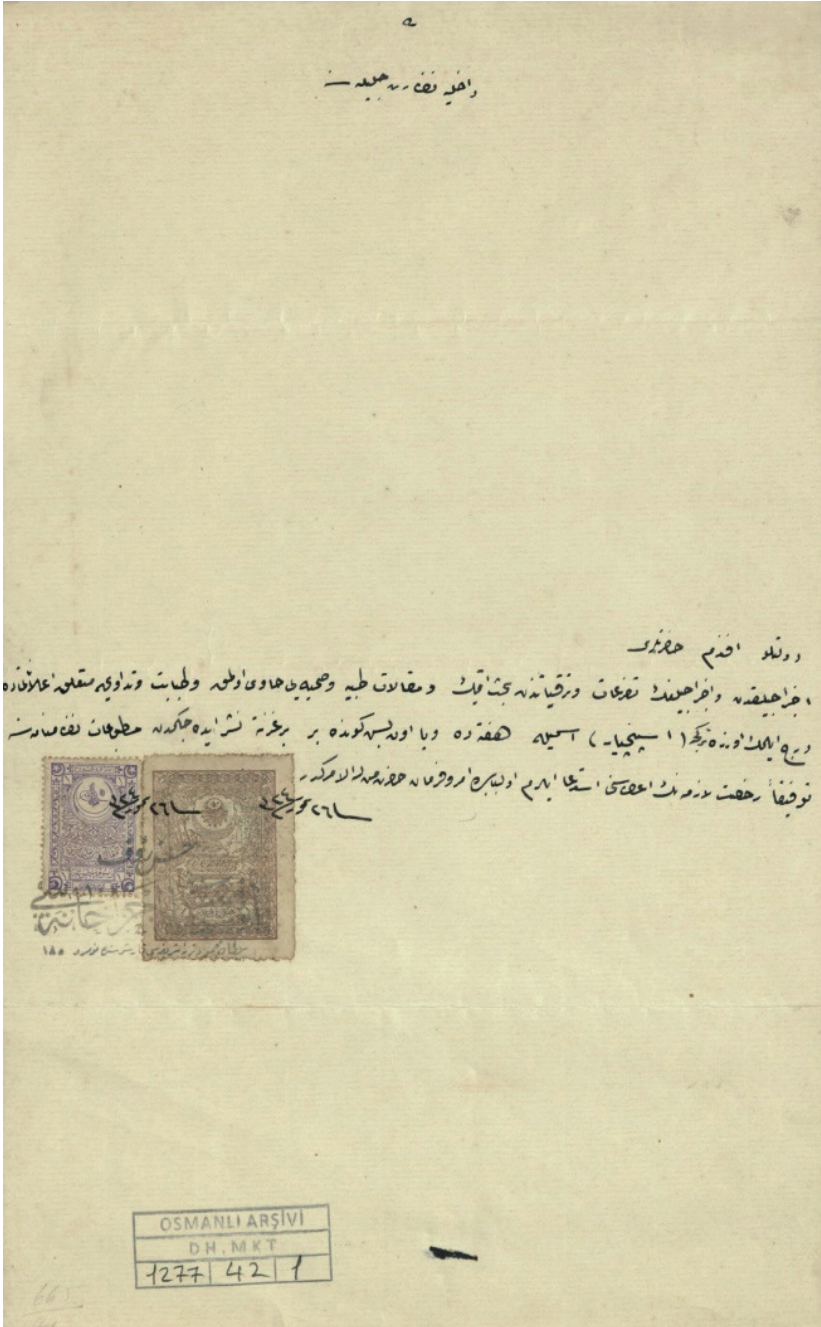 داخلیه نظارت جلیله سنه
دولتلو افندم حضرتلری
اجزاجیلقدن و اجزاجیلغك تفرعات و ترقیاتندن بحث ایتمك و مقالات طبیه و صحیه یی حاوی اولمق و طبابت و تداوی یه متعلق اعلاناتده
درج ایتمك اوزره تركجه ( اسپنچیار ) اسمیله هفته ده ویا اون بش كونده بر غزته نشر ایده جكمدن مطبوعات نظامنامه سنه
توفیقاً رخصت لازمه نك اعطاسنی استدعا ایدرم اولبابده امر و فرمان حضرت من له الامركدر
۱۸۵
OSMANLI ARŞİVİ
DH.MKT
1277 42 1